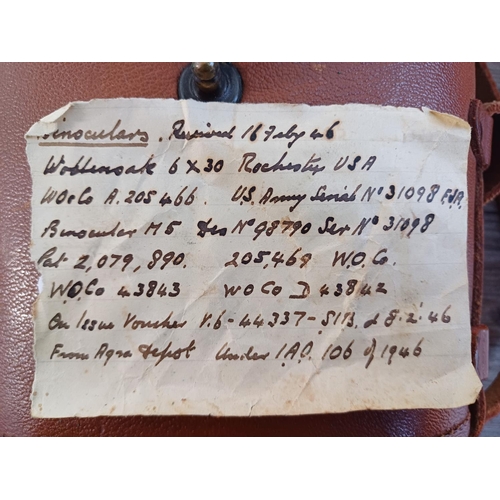 Binoculars. Recived 16 Feby 46
Wollensak 6 x 30 Rochester USA
WOCo A. 205466. U.S. Army Serial No 31098 FJA.
Binocular M5 Des No 98790 Ser No 31098
Pat 2,079,890. 205,469 W.O.Co.
W.O.Co 43843 WOCo D 43842
On Issue Voucher V.6-44337-S1B. d 8.2.46
From Agra Depot Under I.A.O. 106 of 1946